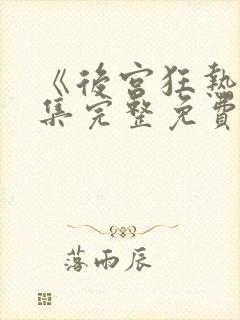 《後宮狂熱
集完整免費
落雨辰